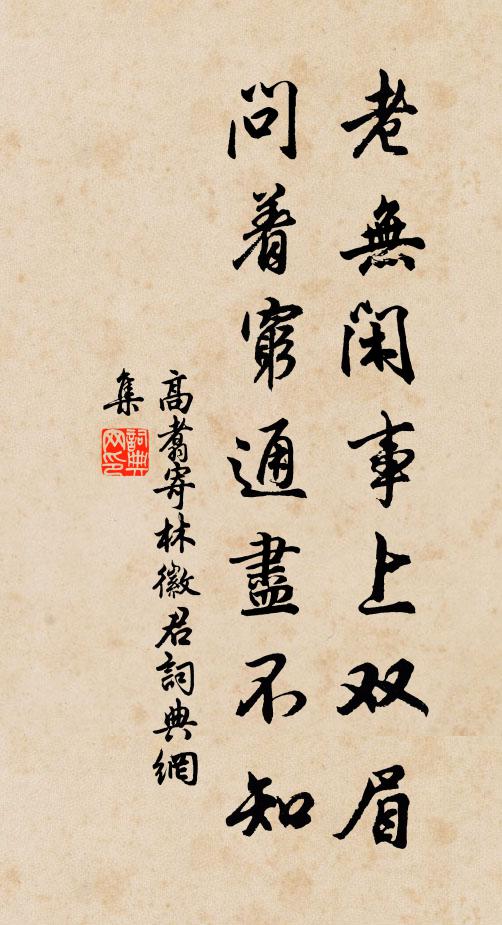 老無閑事上双眉
問着窮通盡不知
高翥寄林徽君詞典網
集
詞典
网印